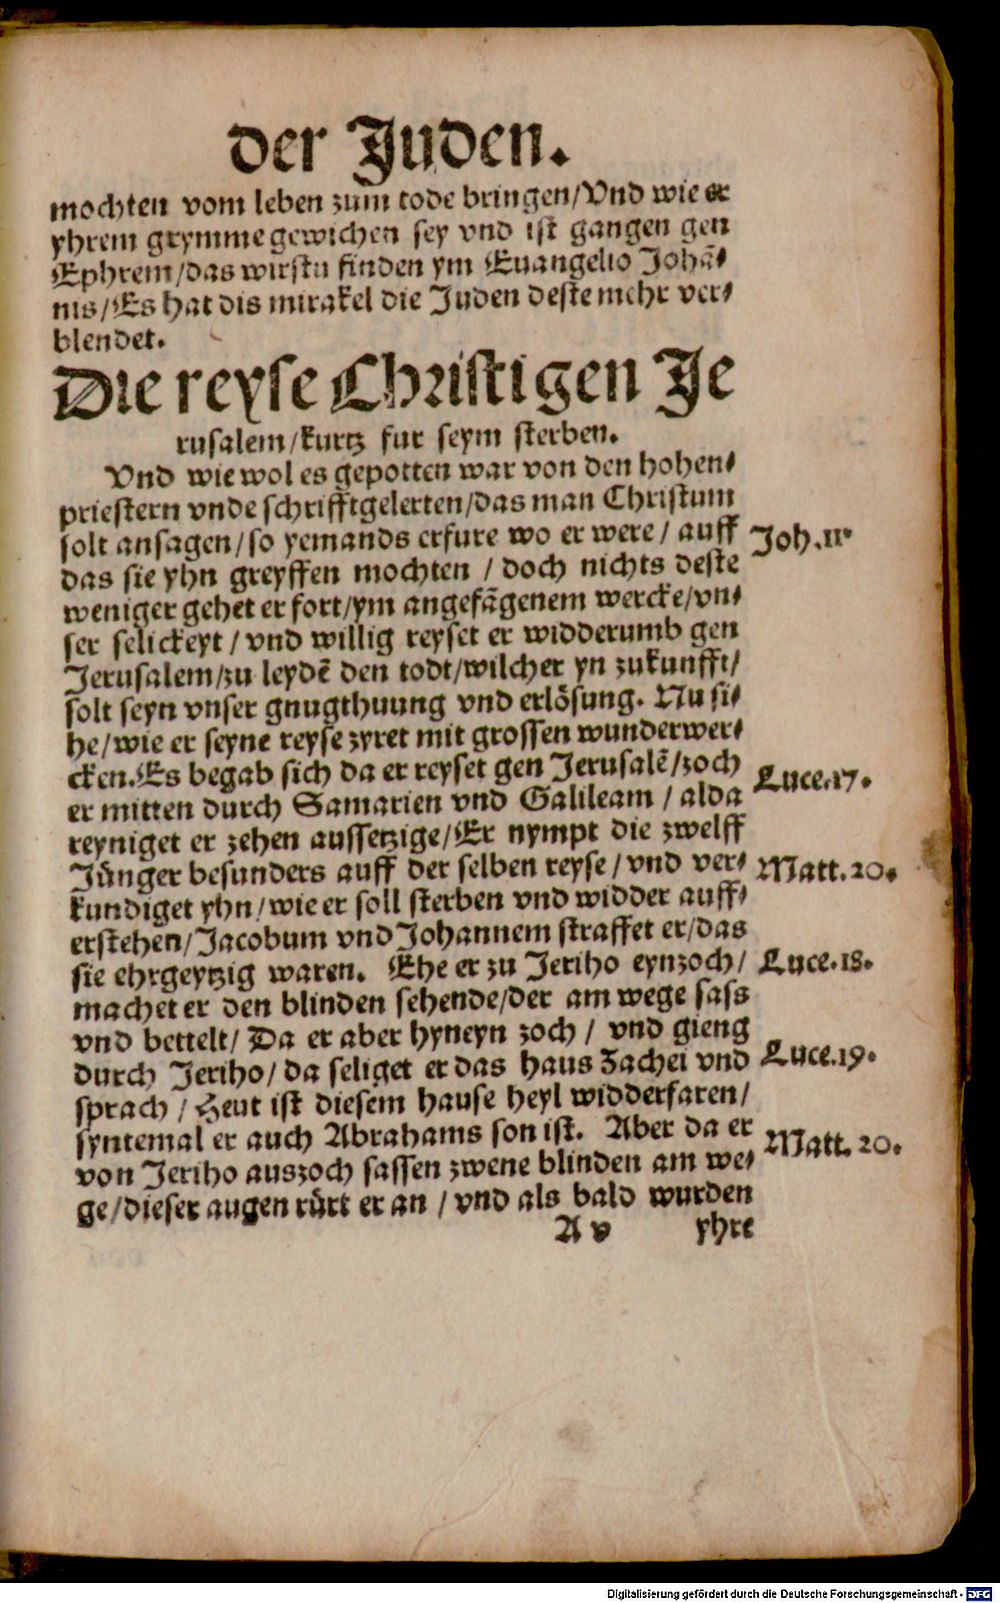 der Juden.
mochten vom leben zum tode bringen/Vnd wie er
yhrem grymme gewichen sey vnd ist gangen gen
Ephrem/das wirstu finden ym Euangelio Johã⸗
nis/Es hat dis mirakel die Juden deste mehr ver⸗
blendet.
Die reyse Christi gen Je
rusalem/kurtz fur seym sterben.
Vnd wie wol es gepotten war von den hohen⸗
priestern vnde schrifftgelerten/das man Christum
solt ansagen/so yemands erfure wo er were/ auff
Joh.11.
das sie yhn greyffen mochten / doch nichts deste
weniger gehet er fort/ym angefãgenem wercke/vn⸗
ser selickeyt / vnd willig reyset er widderumb gen
Jerusalem/zu leydẽ den todt/wilcher yn zukunfft/
solt seyn vnser gnugthuung vnd erlösung. Nu si⸗
he/wie er seyne reyse zyret mit grossen wunderwer⸗
cken.Es begab sich da er reyset gen Jerusalẽ/zoch
Luce.17.
er mitten durch Samarien vnd Galileam / alda
reyniget er zehen aussetzige/Er nympt die zwelff
Jünger besunders auff der selben reyse / vnd ver⸗
Matt.20.
kundiget yhn/wie er soll sterben vnd widder auff⸗
erstehen/Jacobum vnd Johannem straffet er/das
sie ehrgeytzig waren. Ehe er zu Jeriho eynzoch/
Luce.18.
machet er den blinden sehende/der am wege sass
vnd bettelt/ Da er aber hyneyn zoch / vnd gieng
durch Jeriho/ da seliget er das haus Zachei vnd
Luce.19.
sprach / Heut ist diesem hause heyl widderfaren/
syntemal er auch Abrahams son ist. Aber da er
Matt.20.
von Jeriho auszoch sassen zwene blinden am we⸗
ge/dieser augen rürt er an / vnd als bald wurden
A v yhre
Digitalisierung gefördert durch die Deutsche Forschungsgemeinschaft - DFG